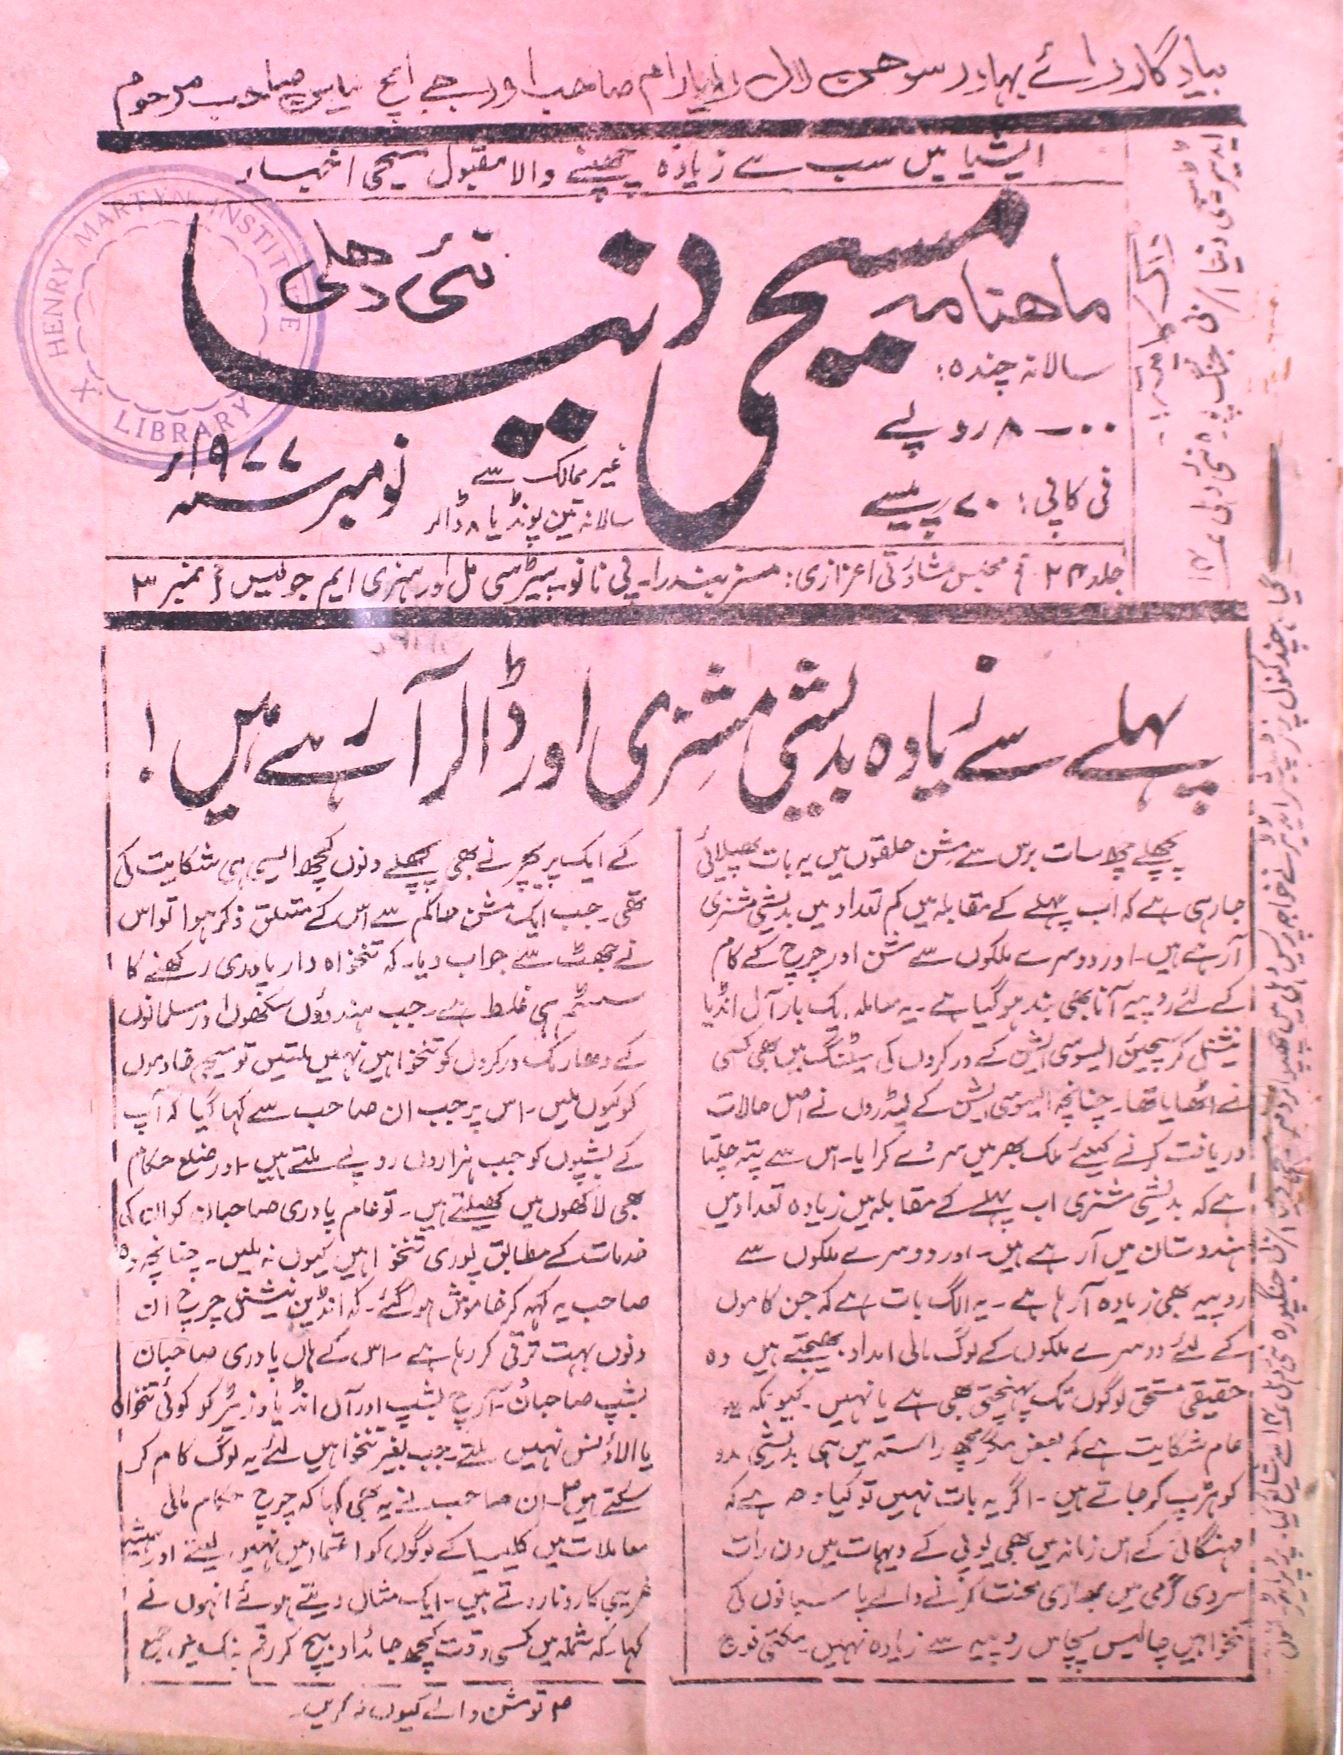 بیادگار رائے بہادر سوہن لال رلیارام صاحب اور جے ایچ صاحب مرحوم
ایشیا میں سب سے زیادہ چھپنے والا مقبول مسیحی اخبار
ماہنامہ
مسیحی دنیا
نئی دھلی
سالانہ چندہ:
۸-۰۰ روپے
فی کاپی: ۷۰ پیسے
غیر ممالک سے
سالانہ تین پونڈ یا ۸ ڈالر
نومبر سنہ ۱۹۷۷ء
HENRY MARTYN INSTITUTE
X LIBRARY
جلد ۲۴ مجلس مشاورتی اعزازی: مسز پیٹر سی مل اور ہنری ایم جوئیس نمبر ۳
پہلے سے زیادہ بدیشی مشنری اور ڈالر آرہے ہیں!
پچھلے چھ سات برس سے مشن حلقوں میں یہ بات پھیلائی
جارہی ہے کہ اب پہلے کے مقابلہ میں کم تعداد میں بدیشی مشنری
آرہے ہیں۔ اور دوسرے ملکوں سے مشن اور چرچ کے کام
کے لئے روپیہ آنا بھی بند ہوگیا ہے۔ یہ معاملہ ایک بار آل انڈیا
نیشنل کرسچین ایسوسی ایشن کے ورکروں کی میٹنگ میں بھی کسی
نے اٹھایا تھا۔ چنانچہ ایسوسی ایشن کے لیڈروں نے اصل حالات
دریافت کرنے کیلئے ملک بھر میں سروے کرایا۔ اس سے پتہ چلتا
ہے کہ بدیشی مشنری اب پہلے کے مقابلہ میں زیادہ تعداد میں
ہندوستان میں آرہے ہیں۔ اور دوسرے ملکوں سے
روپیہ بھی زیادہ آرہا ہے۔ یہ الگ بات ہے کہ جن کاموں
کے لئے دوسرے ملکوں کے لوگ مالی امداد بھیجتے ہیں وہ
حقیقی مستحق لوگوں تک پہنچتی بھی ہے یا نہیں۔ کیونکہ یہ
عام شکایت ہے کہ بعض مگرمچھ راستہ میں ہی بدیشی مدد
کو ہڑپ کر جاتے ہیں۔ اگر یہ بات نہیں تو کیا وجہ ہے کہ
مہنگائی کے اس زمانہ میں بھی یوپی کے دیہات میں دن رات
سردی گرمی میں بھاری محنت کرنے والے پاسبانوں کی
تنخواہیں چالیس پچاس روپیہ سے زیادہ نہیں۔ مکتی فوج
کے ایک پریچر نے بھی پچھلے دنوں کچھ ایسی ہی شکایت کی
تھی۔ جب ایک مشن حاکم سے اس کے متعلق ذکر ہوا تو اس
نے جھٹ سے جواب دیا۔ کہ تنخواہ دار پادری رکھنے کا
سسٹم ہی غلط ہے۔ جب ہندوؤں سکھوں اور مسلمانوں
کے دھارمک ورکروں کو تنخواہیں نہیں ملتیں تو مسیحی خادموں
کو کیوں ملیں۔ اس پر جب ان صاحب سے کہا گیا کہ آپ
کے بشپوں کو جب ہزاروں روپے ملتے ہیں۔ اور ضلع حکام
بھی لاکھوں میں کھیلتے ہیں۔ تو عام پادری صاحبان کو ان کی
خدمات کے مطابق پوری تنخواہیں کیوں نہ ملیں۔ چنانچہ وہ
صاحب یہ کہہ کر خاموش ہوگئے۔ کہ انڈین نیشنل چرچ ان
دنوں بہت ترقی کر رہا ہے۔ اس کے ہاں پادری صاحبان
بشپ صاحبان۔ آرچ بشپ اور آل انڈیا وزیٹر کو کوئی تنخواہ
یا الاؤنس نہیں ملتے۔ جب بغیر تنخواہیں لئے یہ لوگ کام کر
سکتے ہیں ان صاحب نے یہ بھی کہا کہ چرچ حکام مالی
معاملات میں کلیسیا کے لوگوں کو اعتماد میں نہیں لیتے اور ہمیشہ
غریبی کا رونا روتے ہیں۔ ایک مثال دیتے ہوئے انہوں نے
کہا۔ کہ شملہ میں کسی وقت کچھ جائداد بیچ کر رقم بنک میں جمع
تو مشن والے کیوں نہ کریں۔